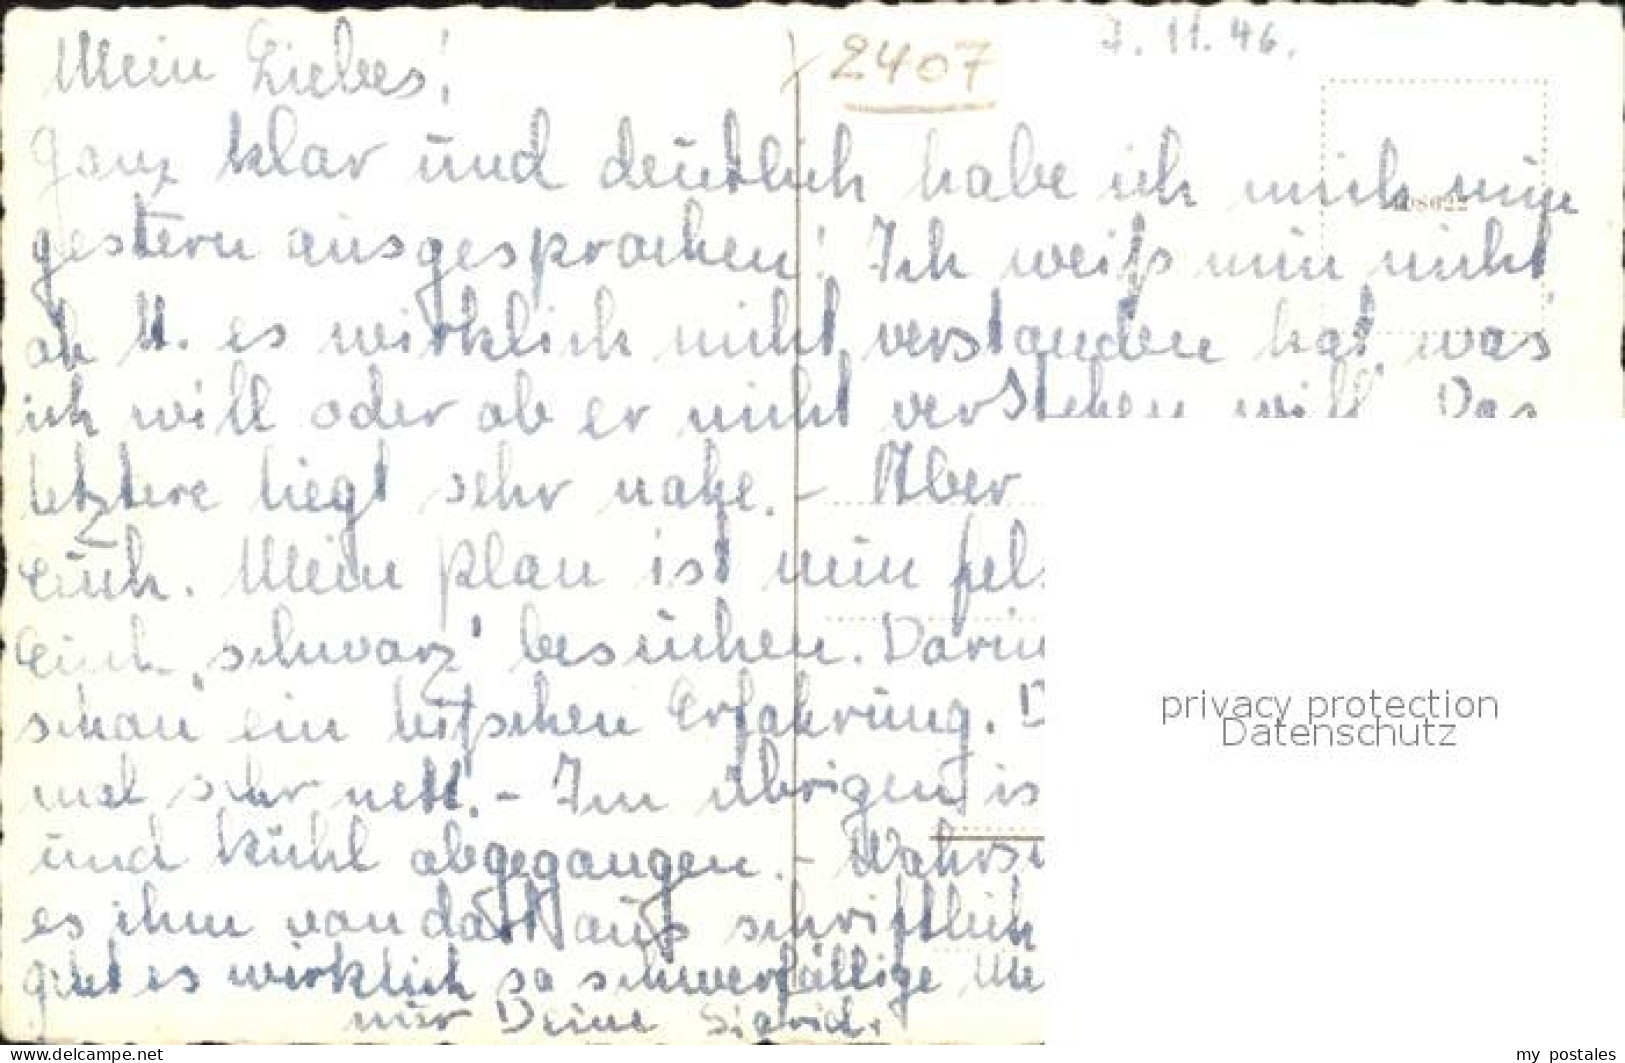 7. 11. 46.
2407
Mein Liebes!
Ganz klar und deutlich habe ich mich nun
gestern ausgesprochen! Ich weiß nun nicht
ob U. es wirklich nicht verstanden hat, was
ich will oder ob er nicht verstehen will. Das
letztere liegt sehr nahe. - Aber
Euch. Mein Plan ist nun fel
Euch „schwarz" besuchen. Darin
schon ein bißchen Erfahrung. D
mal sehr nett. - Im übrigen is
und kühl abgegangen. - Wahrs
es ihm von dort aus schriftlich
gibt es wirklich so schwerfällige Me
nur Deine Sigrid.
privacy protection
Datenschutz
www.delcampe.net
my_postales